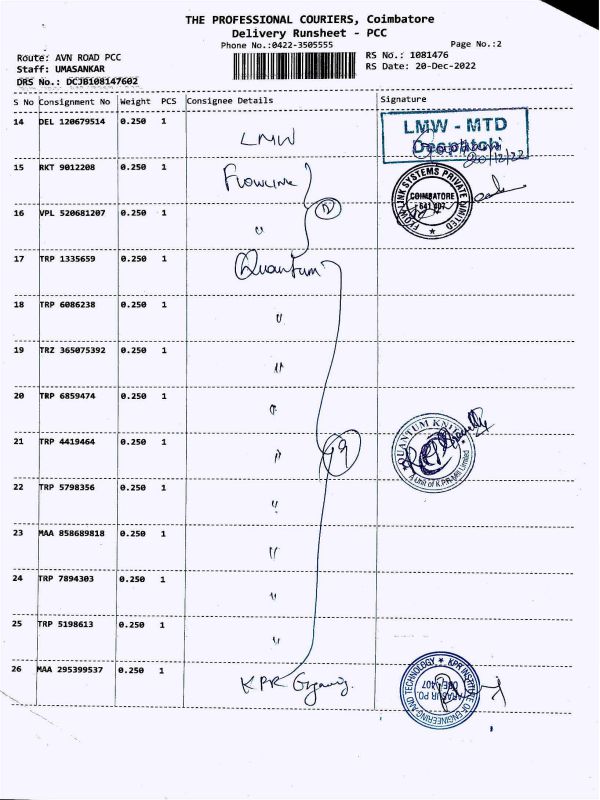 THE PROFESSIONAL COURIERS, Coimbatore
Delivery Runsheet - PCC
Phone No.:0422-3505555
Page No.:2
Route: AVN ROAD PCC
RS No.: 1081476
Staff: UMASANKAR
RS Date: 20-Dec-2022
DRS No.: DCJB108147602
S No Consignment No Weight PCS Consignee Details Signature
14 DEL 120679514 0.250 1 LMW
LMW - MTD
Despatch
20/12/22
15 RKT 9012208 0.250 1 Flowlink
FLOW LINK SYSTEMS PRIVATE LIMITED
COIMBATORE
641 407
16 VPL 520681207 0.250 1 "
17 TRP 1335659 0.250 1 Quantum
18 TRP 6086238 0.250 1 "
19 TRZ 365075392 0.250 1 "
20 TRP 6859474 0.250 1 "
21 TRP 4419464 0.250 1 "
QUANTUM KNITS
A Unit of K.P.R.Mill Limited
22 TRP 5798356 0.250 1 "
23 MAA 858689818 0.250 1 "
24 TRP 7894303 0.250 1 "
25 TRP 5198613 0.250 1 "
26 MAA 295399537 0.250 1 KPR
KPR INSTITUTE OF ENGINEERING AND TECHNOLOGY